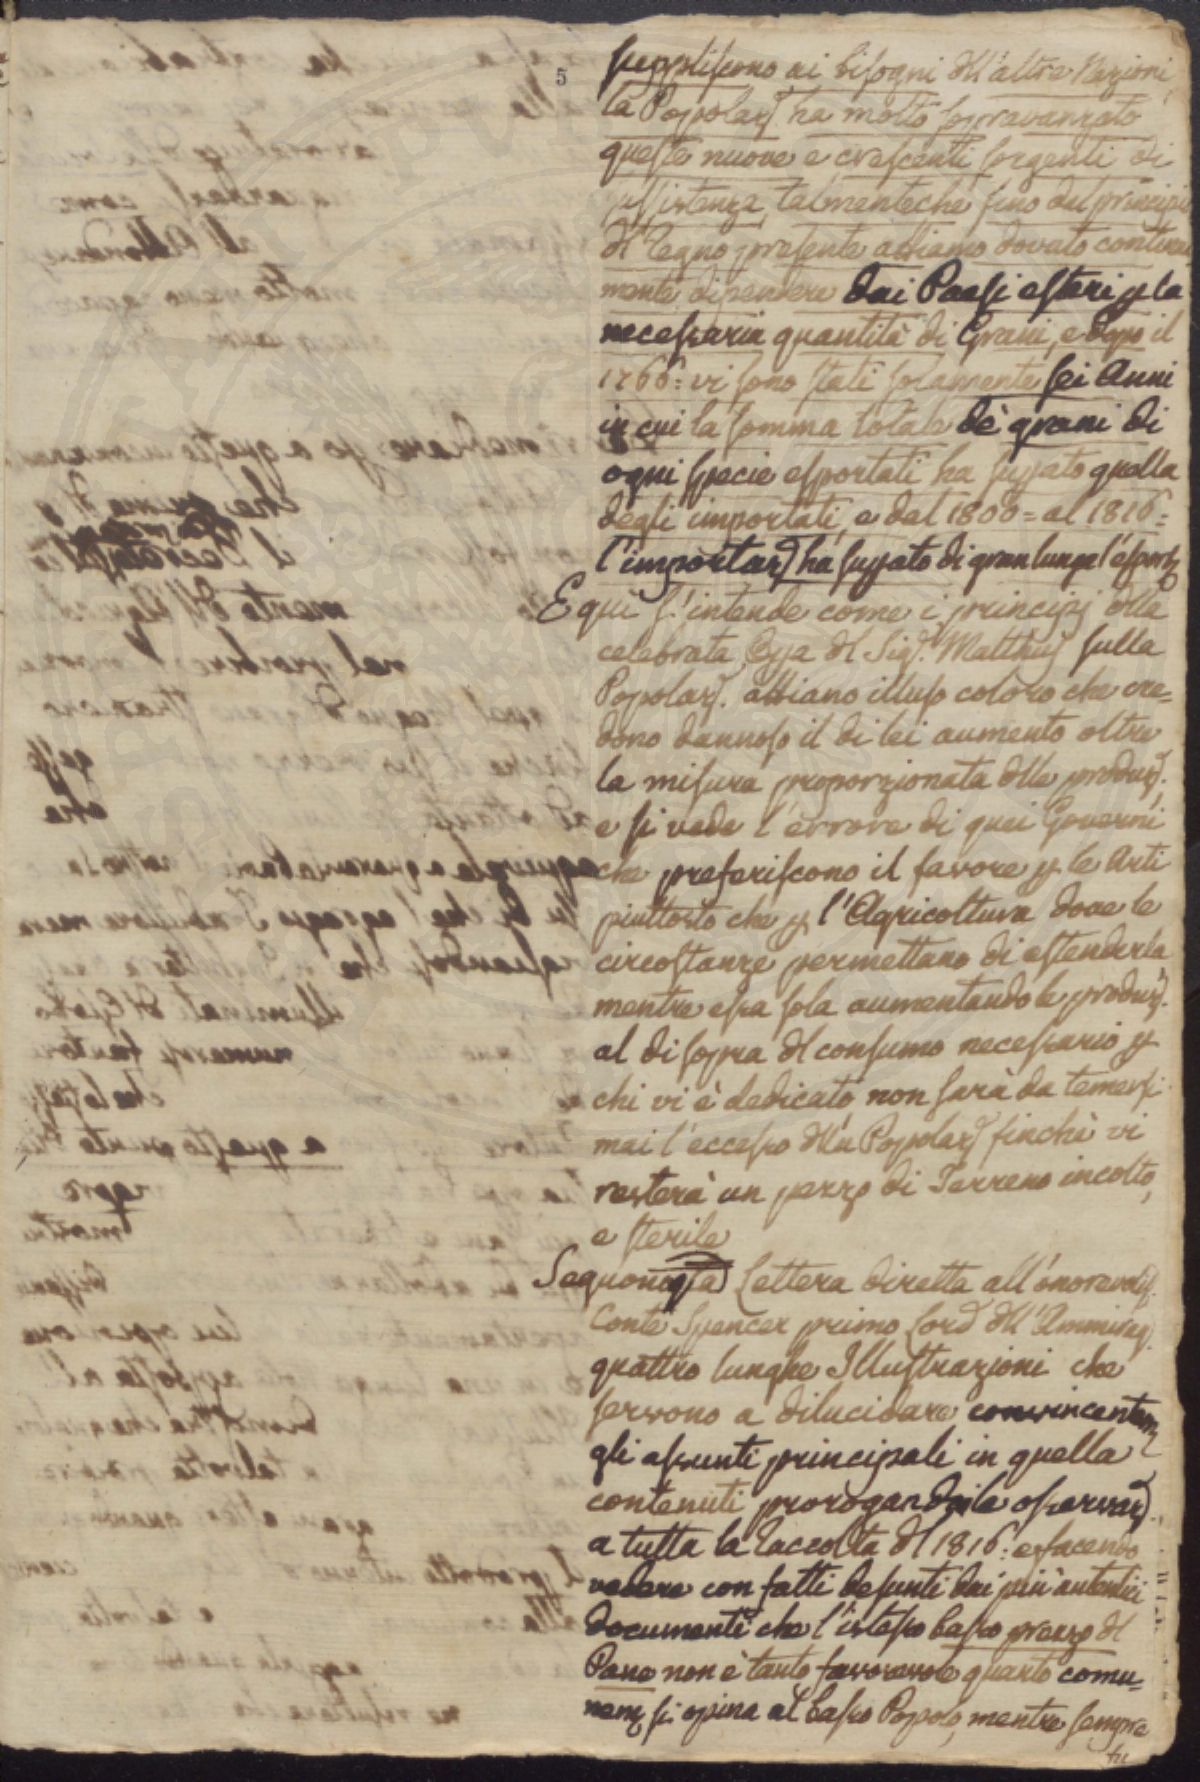 5
suppliscono ai bisogni dell'altre Nazioni,
la Popolaz. ha molto sopravanzato
queste nuove e crescenti sorgenti di
sussistenza, talmenteché fino dal principio
del Regno presente abbiamo dovuto continua
mente dipendere dai Paesi esteri p la
necessaria quantità di Grani, e dopo il
1766: vi sono stati solamente sei Anni
in cui la somma totale de' grani di
ogni specie esportati ha supato quella
degli importati, e dal 1800 = al 1816 =
l'importaz. ha supato di gran lunga l'esportaz.
E qui s'intende come i principj della
celebrata Opa del Sig. Malthus sulla
Popolaz. abbiano illuso coloro che cre=
dono dannoso il di lei aumento oltre
la misura proporzionata alla produz.
e si vede l'errore di quei Governi
che preferiscono il favore p le Arti
piuttosto che p l'Agricoltura dove le
circostanze permettano di estenderla
mentre essa sola aumentando le produz.
al di sopra del consumo necessario p
chi vi è dedicato non sarà da temersi
mai l'eccesso della Popolaz. finchè vi
resterà un pezzo di Terreno incolto,
e sterile
Seguono Lettera diretta all'onorevoliss.
Conte Spencer primo Lord dell'Ammiragl.
quattro lunghe Illustrazioni che
servono a dilucidare convincentem.
gli assunti principali in quella
contenuti prorogandoile osservaz.
a tutta la Raccolta del 1816: e facendo
vedere con fatti desunti dai più autentici
documenti che l'istesso basso prezzo del
Pane non è tanto favorevole quanto comu=
nem. si opina al basso Popolo, mentre sempre